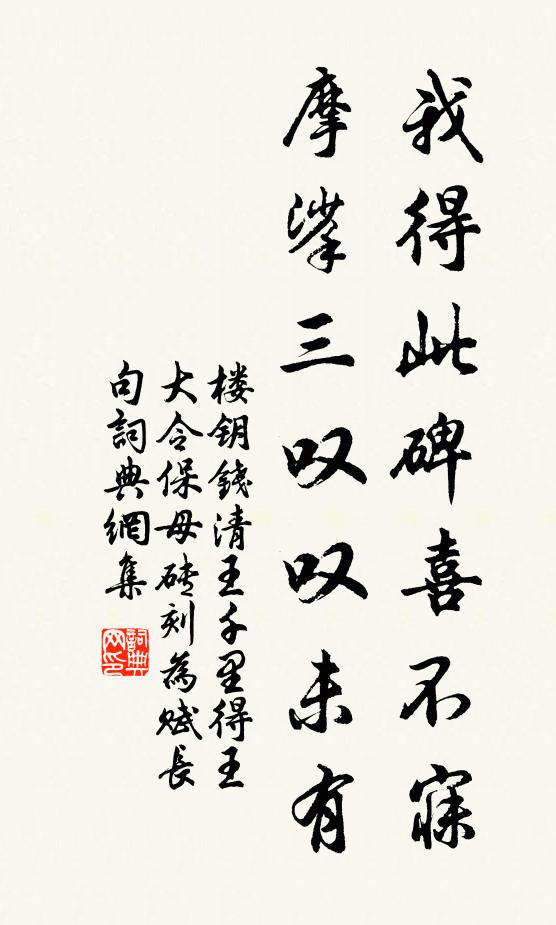 我得此碑喜不寐
摩挲三叹叹未有
楼钥錢清王千里得王
大令保母磚刻為賦長
句詞典網集
詞典网印